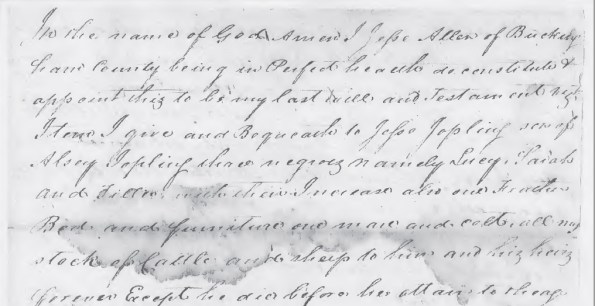 In the name of God Amen I Jesse Allen of Bucking
ham County being in Perfect health do constitute &
appoint this to be my last will and Testament viz
Item I give and Bequeath to Jesse Jopling son of
Alsey Jopling three negroes namely Lucy, Sarah
and with their Increase also one Feather
Bed and furniture one mare and colt, all my
stock of Cattle and sheep to him and his heirs
forever Except he die before he attain to the age